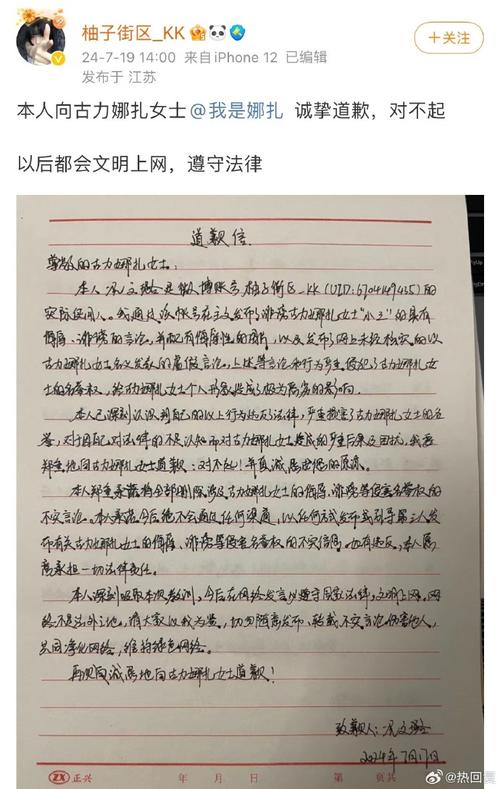 柚子街区_KK
24-7-19 14:00 来自iPhone 12 已编辑
发布于 江苏
+关注
本人向古力娜扎女士@我是娜扎 诚挚道歉，对不起
以后都会文明上网，遵守法律
道歉信
尊敬的古力娜扎女士：
本人 是微博账号，柚子街区_KK (UID:6704149435)的
实际使用人。我通过该帐号在 发布了诽谤古力娜扎女士"小三"的具有
侮辱、诽谤的言论，并配有侮辱性的图片，以及发布了网上未经核实的以
古力娜扎女士名义发表的虚假言论，上述等言论和行为严重侵犯了古力娜扎女
士的名誉权，给古力娜扎女士个人形象造成了极为恶劣的影响。
本人已深刻认识到自己的以上行为违反法律，严重损害了古力娜扎女士的名
誉，对于自己对法律的不足认知而对古力娜扎女士造成的严重后果及困扰，我要
郑重地向古力娜扎女士道歉：对不起！并真诚恳求您的原谅。
本人郑重承诺将全部删除涉及古力娜扎女士的侮辱、诽谤等侵害名誉权的
不实言论。本人承诺今后绝不会通过任何渠道，以任何方式发布或引导第三人发
布有关古力娜扎女士的侮辱、诽谤等侵害名誉权的不实信息。如有违反，本人愿
意承担一切法律责任。
本人深刻吸取本次教训，今后在网络发言必遵守国家法律，文明上网。网
络不是法外之地，请大家以我为鉴，切勿随意发布、转载不实言论伤害他人，
共同净化网络，维护绿色网络。
再次真诚恳地向古力娜扎女士道歉！
致歉人：
2024年7月17日
正兴 年 月 日 第 页共 页
@热回